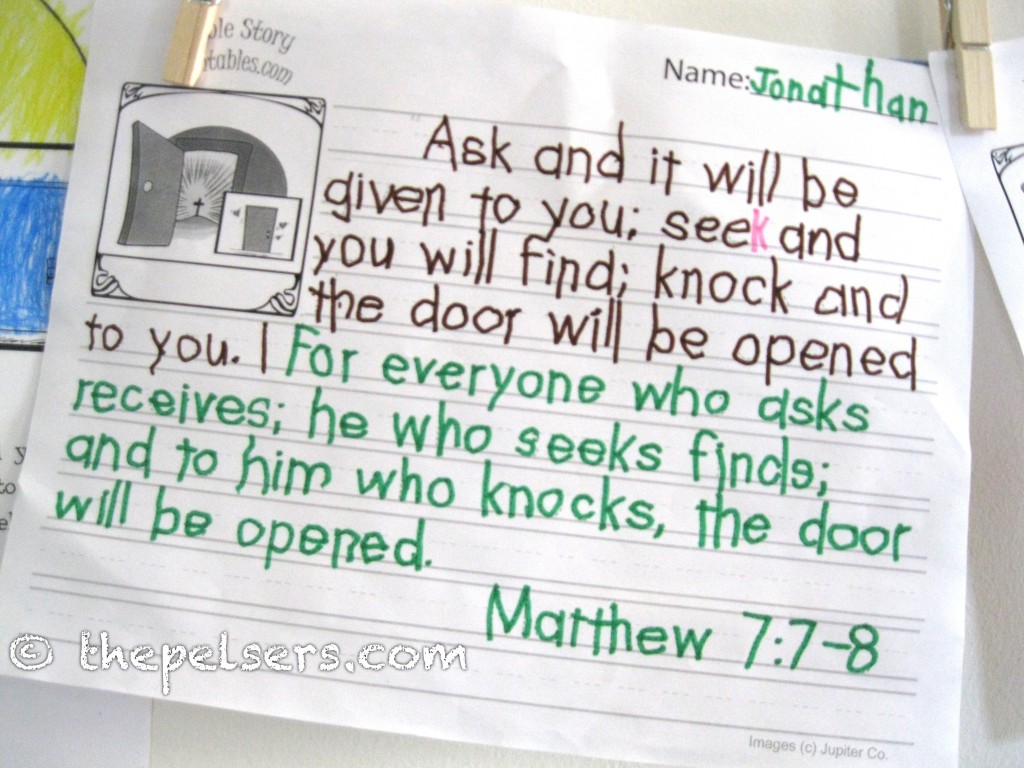 ble Story
tables.com
Name: Jonathan
Ask and it will be
given to you; seek and
you will find; knock and
the door will be opened
to you. | For everyone who asks
receives; he who seeks finds;
and to him who knocks, the door
will be opened.
Matthew 7:7-8
© thepelsers.com
Images (c) Jupiter Co.